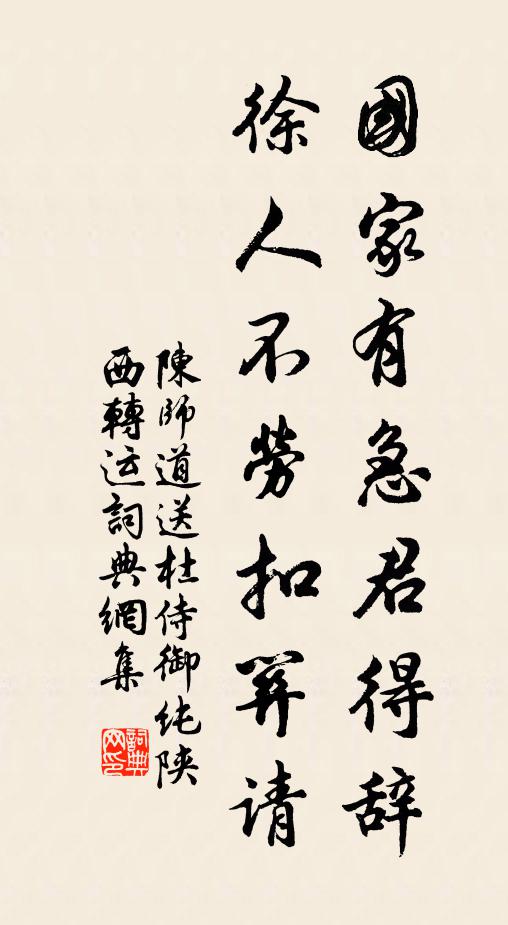 國家有急君得辞
徐人不勞扣笄请
陳師道送杜侍御純陝
西轉运詞典網集
詞典网印